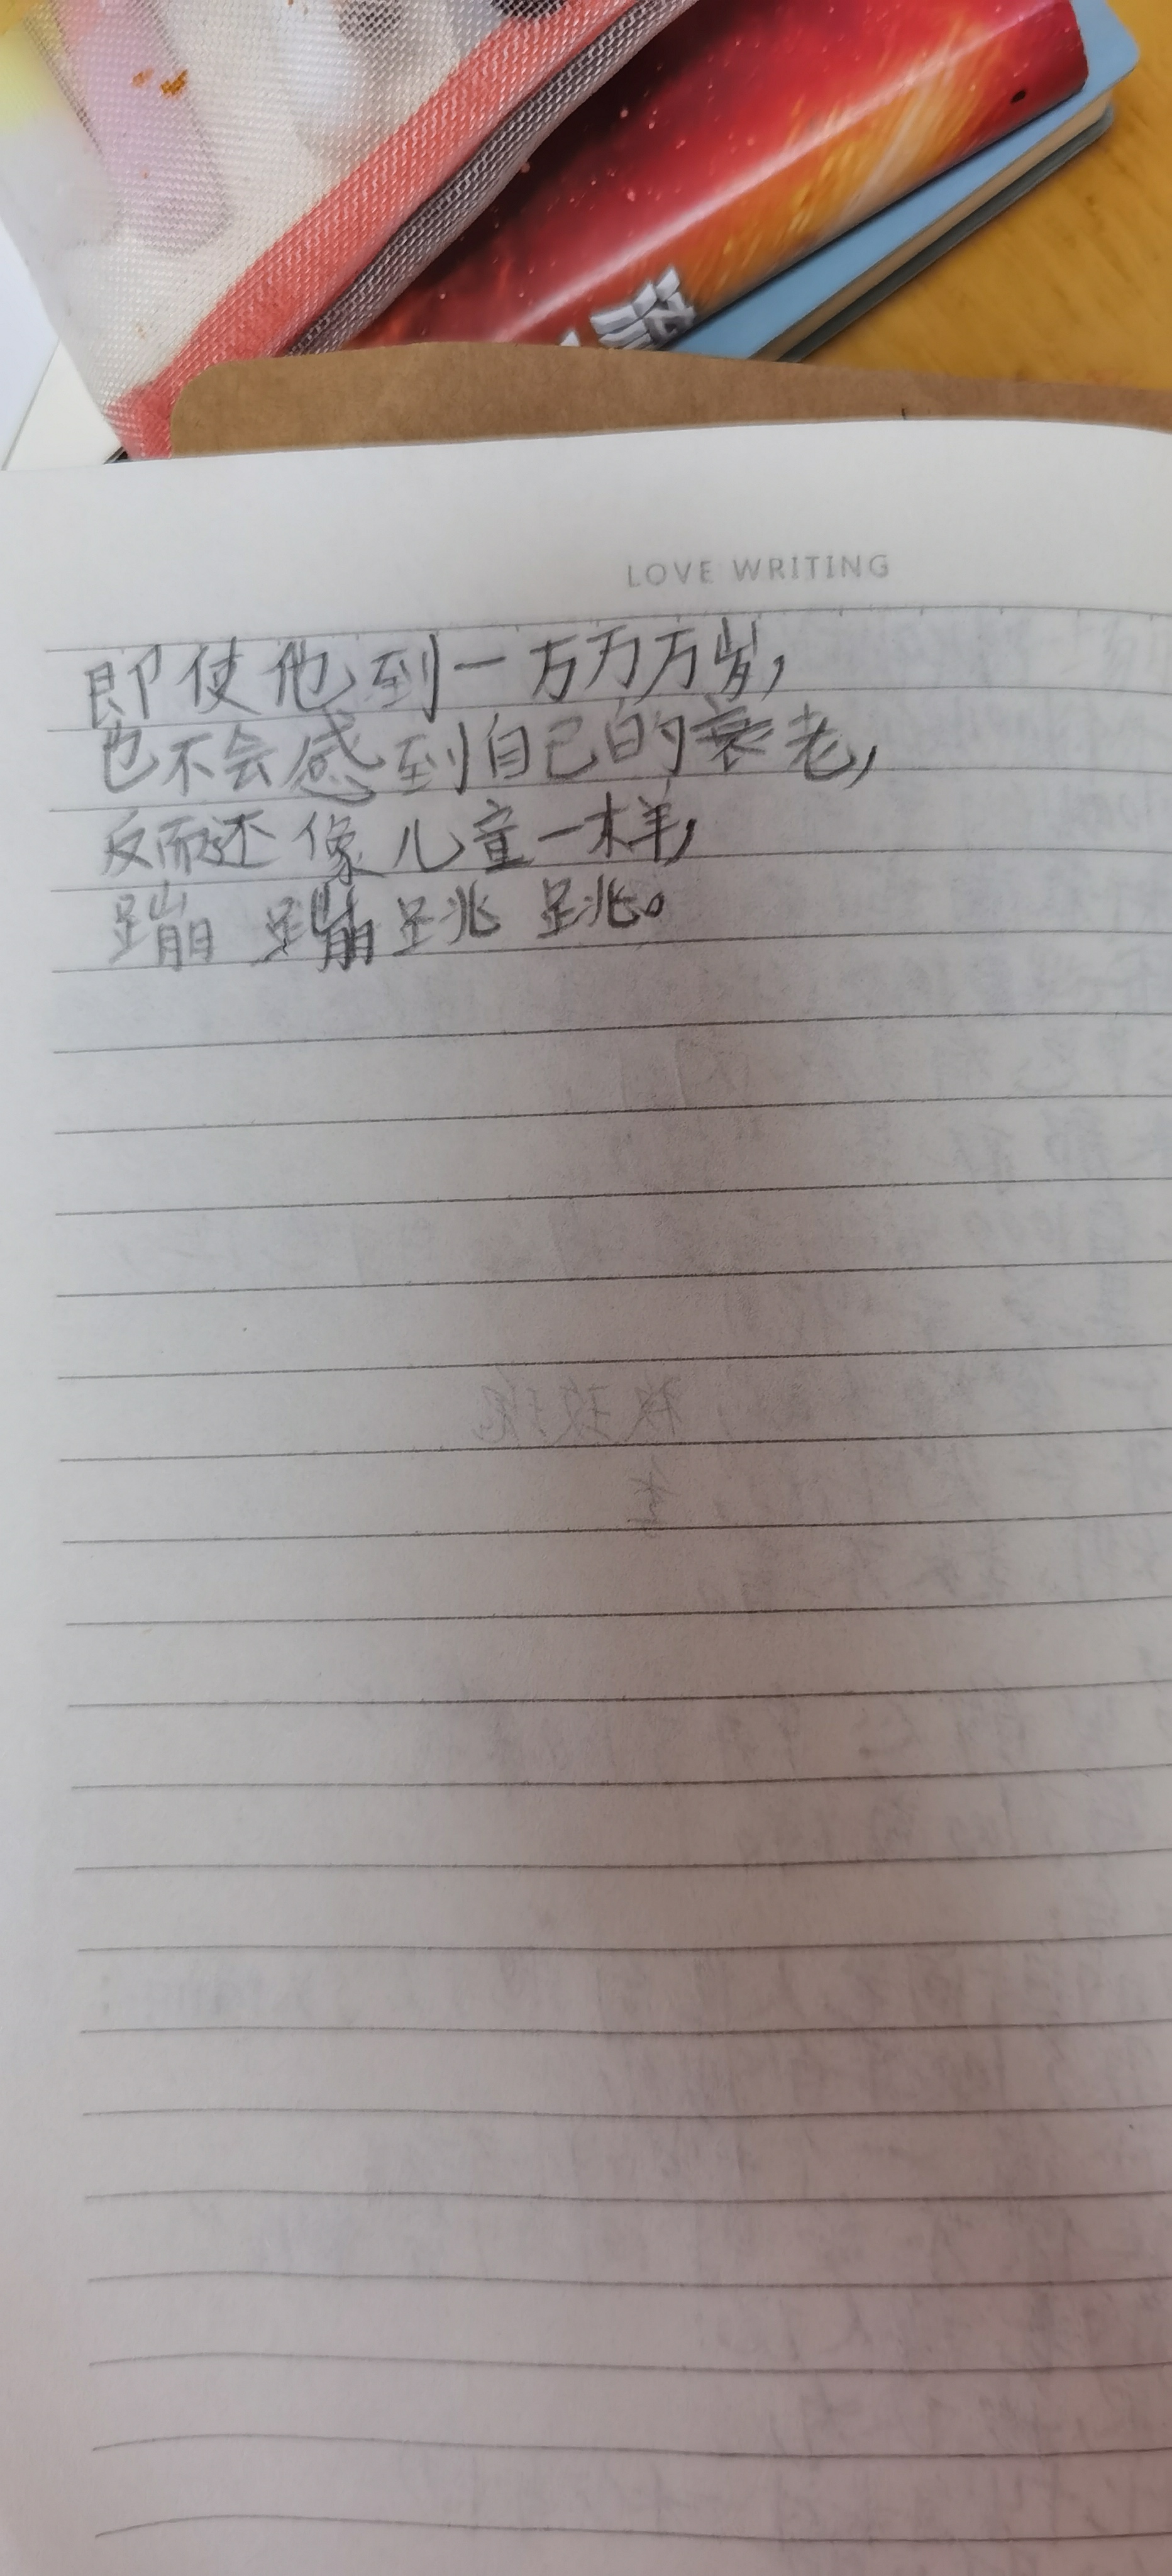 流
LOVE WRITING
即使他到一万万万岁,
也不会感到自己的衰老,
反而还像儿童一样,
蹦 蹦跳 跳。